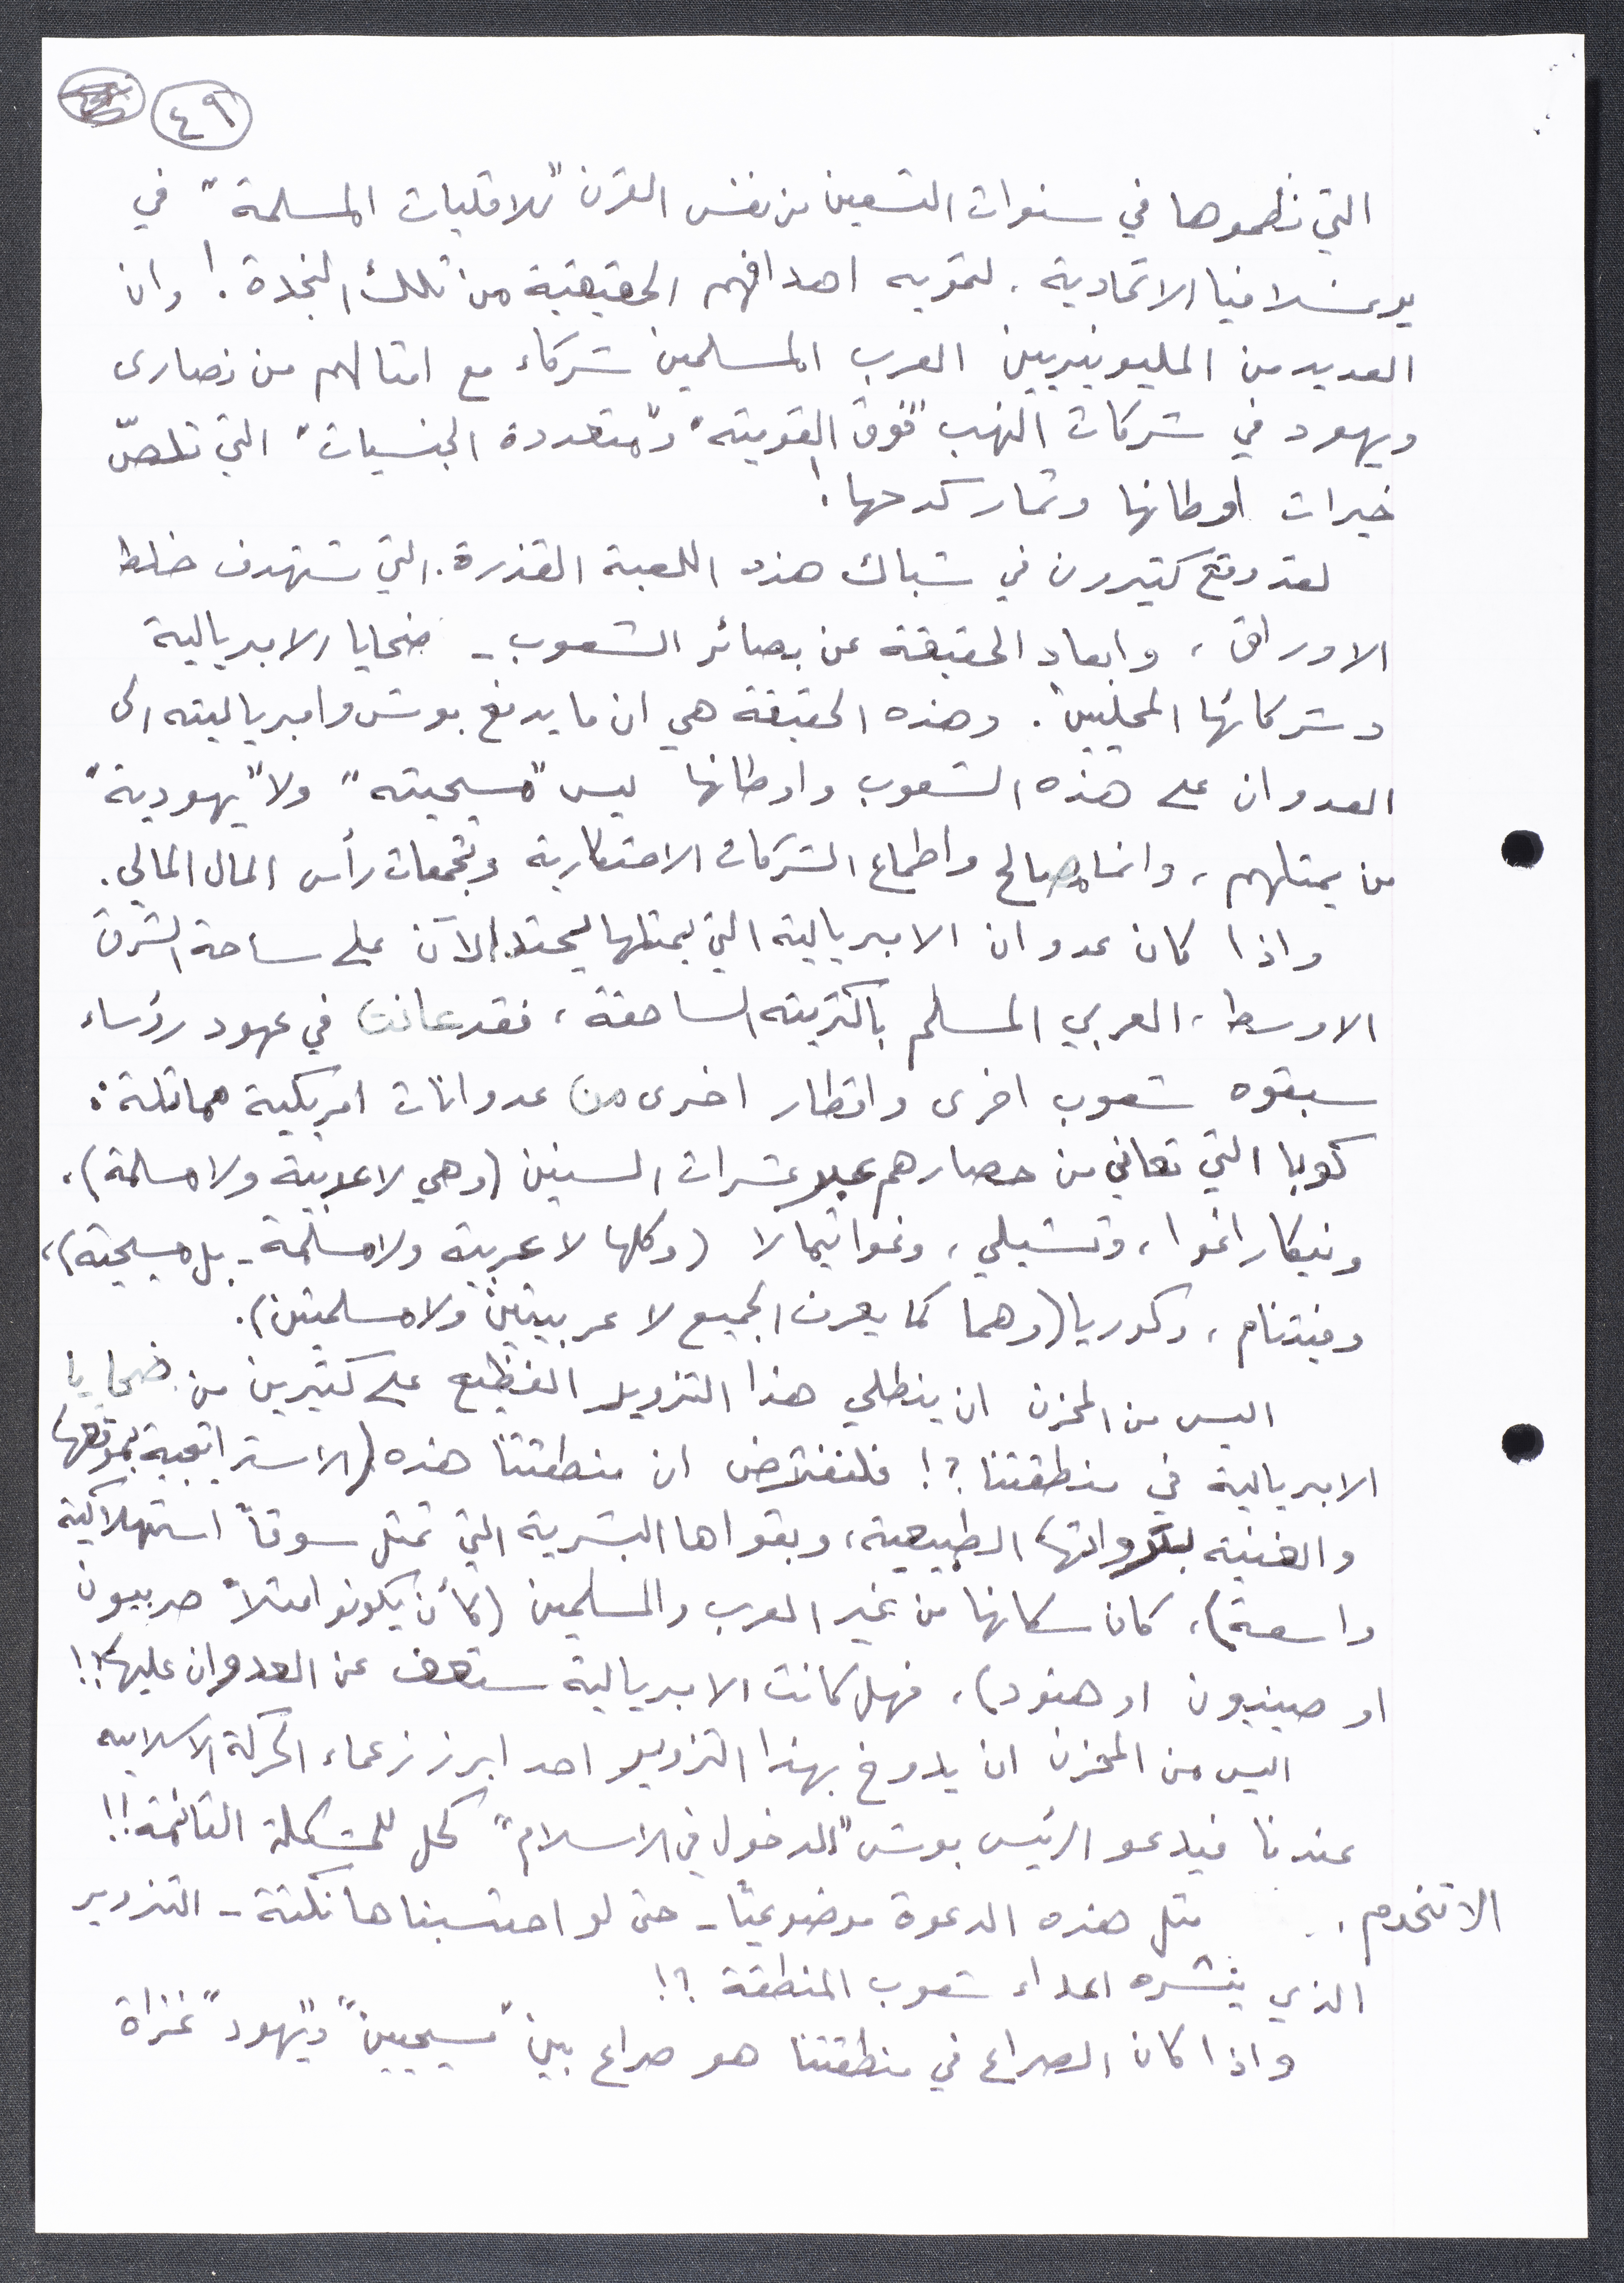 ٤٩
التي نظموها في سنوات التسعين من نفس القرن "للاقليات المسلمة" في
يوغسلافيا الاتحادية، لتمويه اهدافهم الحقيقية من تلك النجدة! وان
العديد من المليونيريين العرب المسلمين شركاء مع امثالهم من نصارى
ويهود في شركات النهب "فوق القومية" و"متعددة الجنسيات" التي تلصّ
خيرات اوطانها وثمار كدحها!
لقد وقع كثيرون في شباك هذه اللعبة القذرة. التي تستهدف خلط
الاوراق، وابعاد الحقيقة عن بصائر الشعوب - ضحايا الامبريالية
وشركائها المحليين. وهذه الحقيقة هي ان ما يدفع بوش وامبرياليته الى
العدوان على هذه الشعوب واوطانها ليس "مسيحيته" ولا "يهودية"
من يمثلهم، وانما مصالح واطماع الشركات الاحتكارية وتجمعات رأس المال المالي.
واذا كان عدوان الامبريالية التي يمثلها يحتد الآن على ساحة الشرق
الاوسط، العربي المسلم باكثريته الساحقة، فقد عانت في عهود رؤساء
سبقوه شعوب اخرى واقطار اخرى من عدوانات امريكية مماثلة:
كوبا التي تعاني من حصارهم عبر عشرات السنين (وهي لا عربية ولا مسلمة)،
ونيكاراغوا، وتشيلي، وغواتيمالا (وكلها لا عربية ولا مسلمة - بل مسيحية)،
وفيتنام، وكوريا (وهما كما يعرف الجميع لا عربيتين ولا مسلمتين).
اليس من المحزن ان ينطلي هذا التزوير الفظيع على كثيرين من ضحايا
الامبريالية في منطقتنا؟! فلنفترض ان منطقتنا هذه (الاستراتيجية بموقعها
والغنية بثرواتها الطبيعية، وبقواها البشرية التي تمثل سوقاً استهلاكية
واسعة)، كان سكانها من غير العرب والمسلمين (كأن يكونوا مثلاً صربيون
او صينيون او هنود)، فهل كانت الامبريالية ستعف عن العدوان عليها؟!!
اليس من المحزن ان يدوخ بهذا التزوير احد ابرز زعماء الحركة الاسلامية
عندنا فيدعو الرئيس بوش "للدخول في الاسلام" كحل للمشكلة القائمة!!
الا تخدم مثل هذه الدعوة موضوعيًا - حتى لو احتسبناها نكتة - التزوير
الذي ينشره اعداء شعوب المنطقة؟!
واذا كان الصراع في منطقتنا هو صراع بين "مسيحيين" و"يهود" غزاة